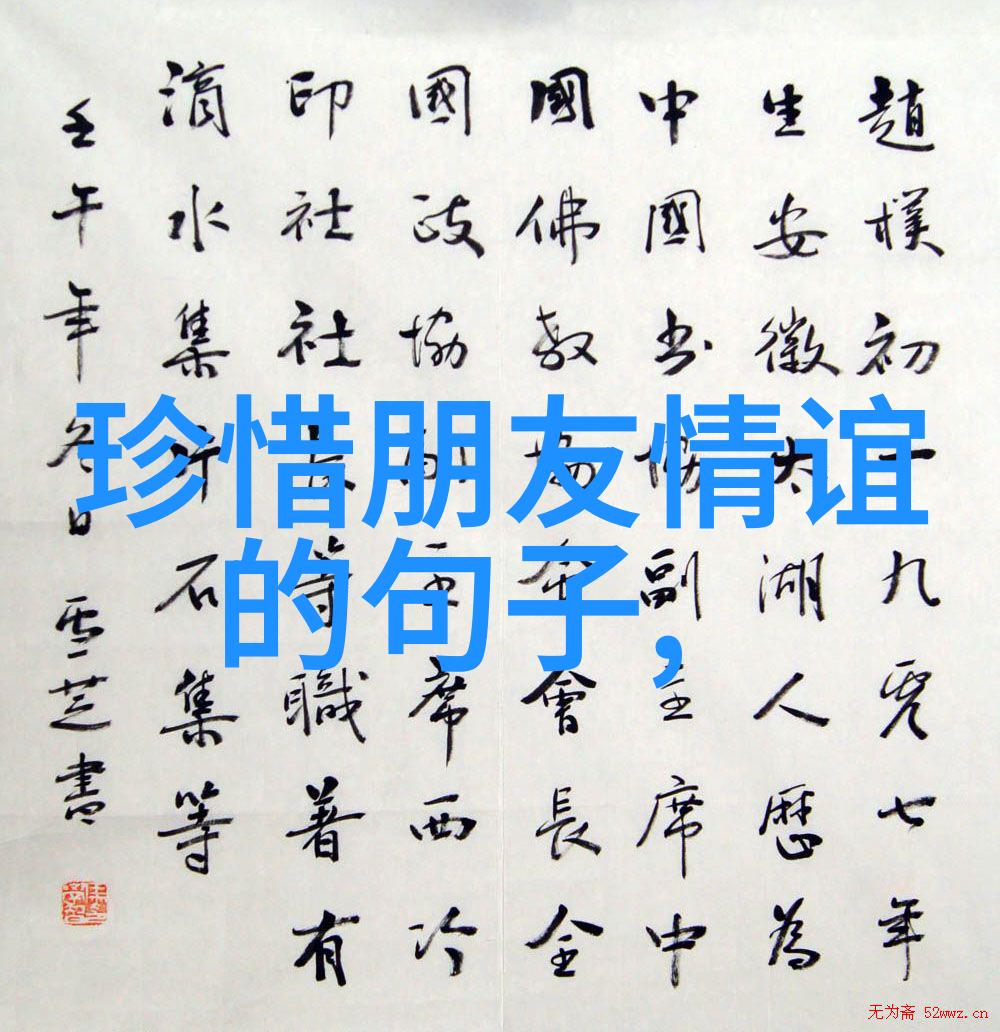 珍惜朋友情谊
的句子,
趙樸初一九零七年
生安徽太湖人歷為
中國书協副主席中
國佛教協会會長全
國政協副主席西冷
印社社長等職著有
滴水集片石集等
壬午年冬日雪芝書
无为斋 52wwz.cn